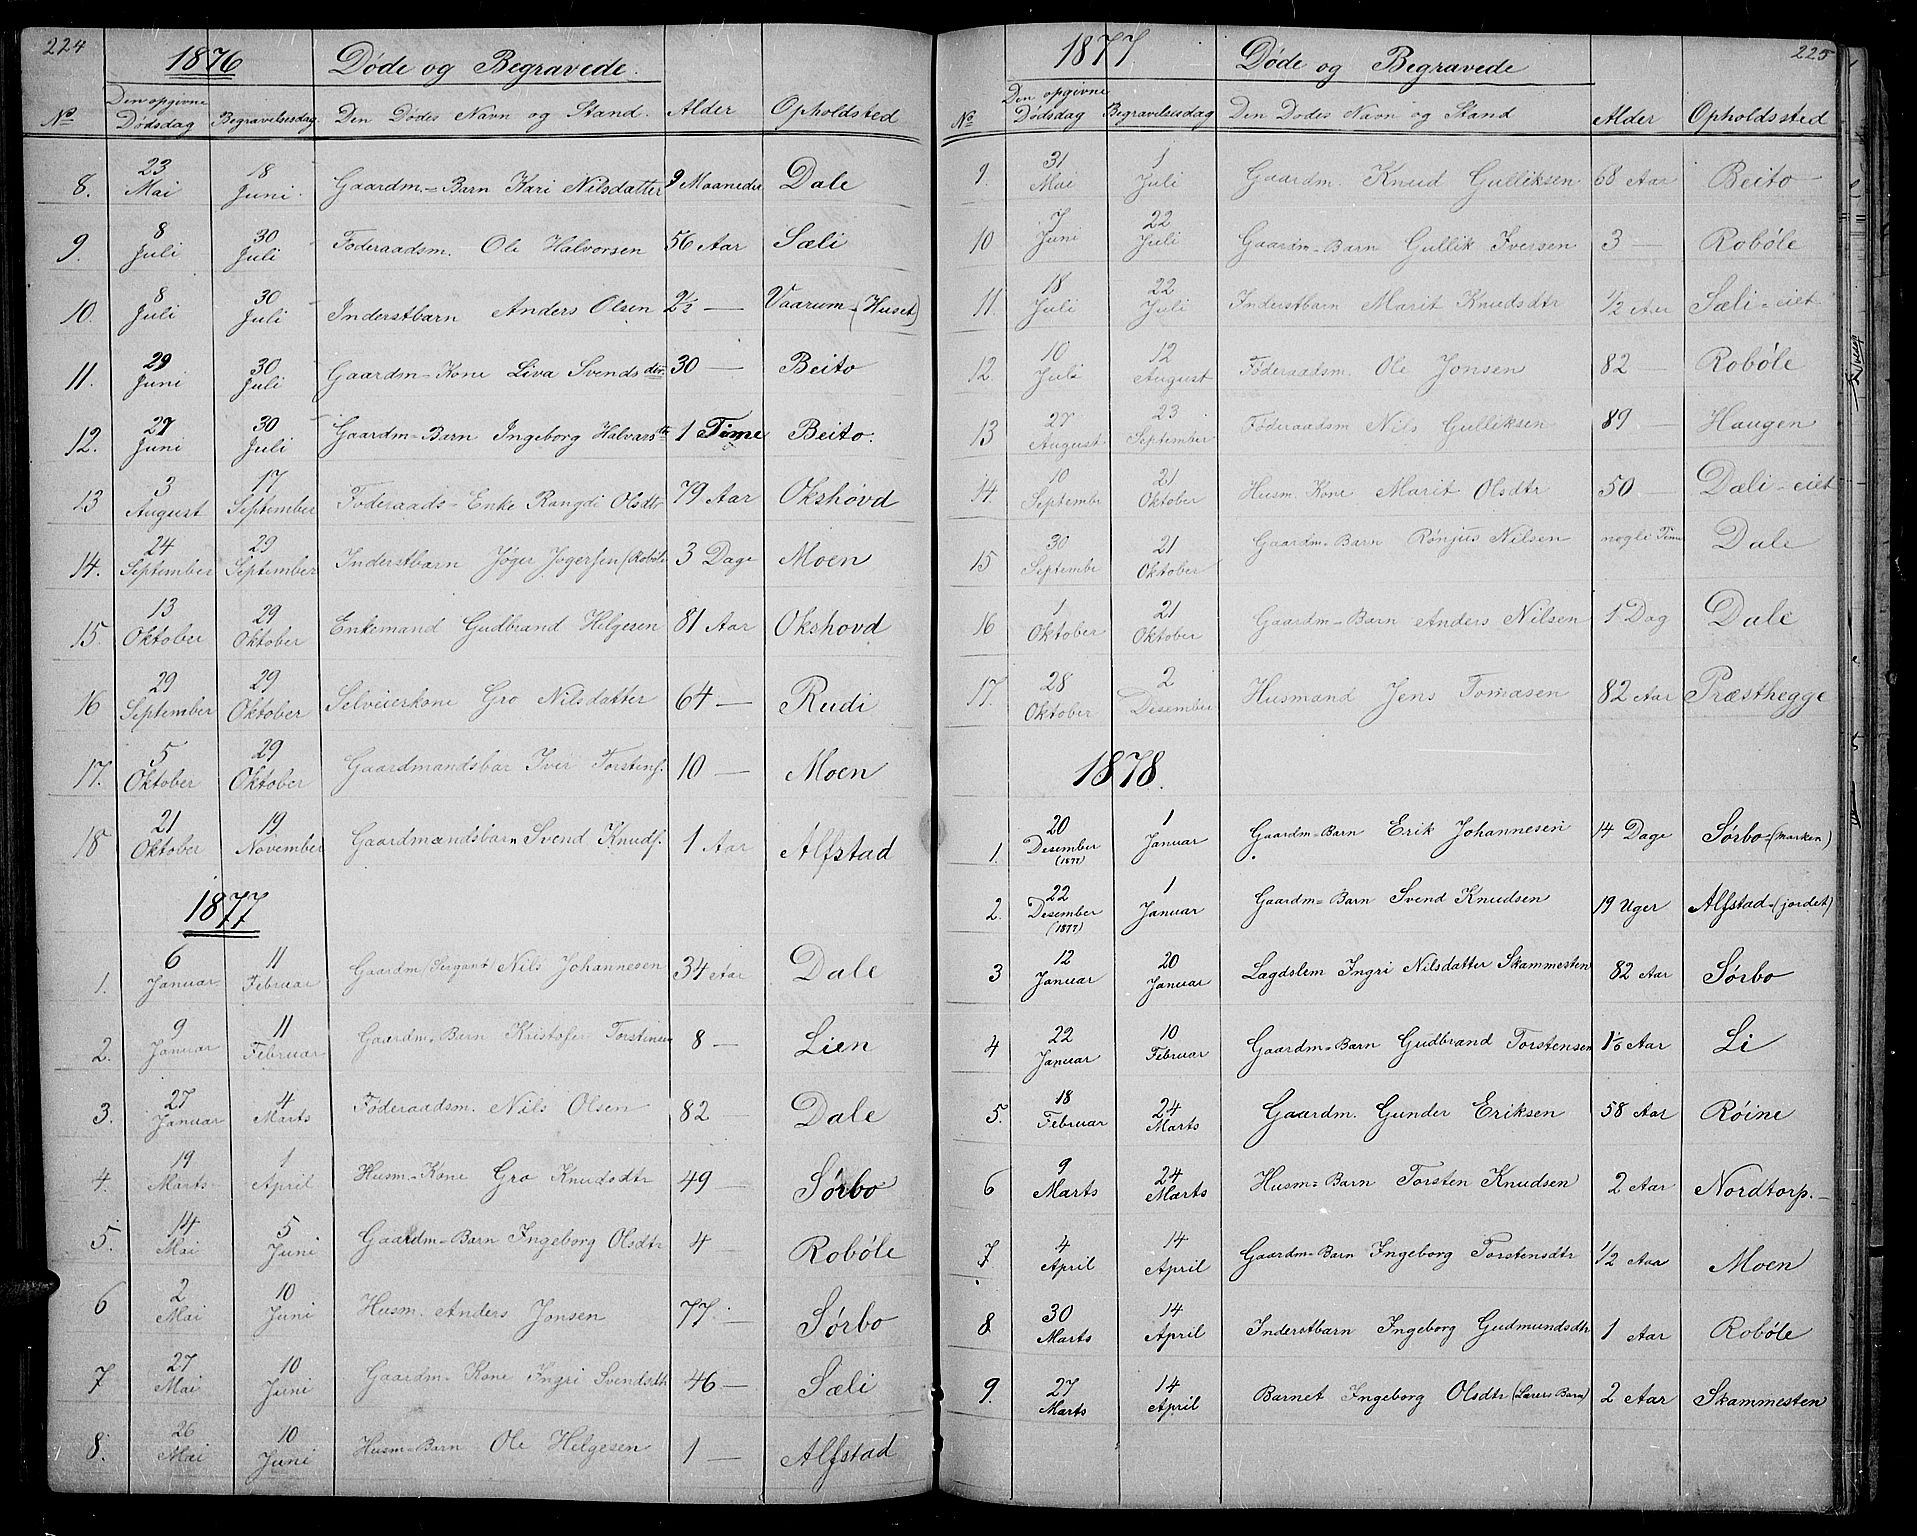 224
1876
Døde og Begravede.
No
Den opgivne Dødsdag
Begravelsesdag
Den Dødes Navn og Stand.
Alder
Opholdsted
8. 23 Mai 18 Juni. Gaardm-Barn Kari Nilsdatter 9 Maaneder Dale
9. 8 Juli 30 Juli Føderaadsm. Ole Halvorsen 56 Aar Sæli
10. 8 Juli 30 Juli Inderstbarn Anders Olsen 2½ — Vaarum (Huset)
11. 29 Juni 30 Juli Gaardm-Kone Liva Svendsdtr. 30 — Beito
12. 27 Juni 30 Juli Gaardm-Barn Ingeborg Halvorsdtr 1 Time Beito.
13 3 August 17 September Føderaads-Enke Rangdi Olsdtr 79 Aar Okshøvd
14. 24 September 29 September Inderstbarn Jøger Jogersen (Robøle 3 Dage Moen
15. 13 Oktober 29 Oktober Enkemand Gudbrand Helgesen 81 Aar Okshovd
16 29 September 29 Oktober Selveierkone Gro Nilsdatter 64 — Rudi
17. 5 Oktober 29 Oktober Gaardmandsbar Iver Torstens. 10 — Moen
18 21 Oktober 19 November Gaardmandsbarn Svend Knuds. 1 Aar Alfstad
1877
1. 6 Januar 11 Februar Gaardm (Sergant) Nils Johannesen 34 Aar Dale
2. 9 Januar 11 Februar Gaardm-Barn Kristofer Torstensen 8 — Lien
3. 27 Januar 4 Marts Føderaadsm. Nils Olsen 82 — Dale
4. 19 Marts 1 April Husm-Kone Gro Knudsdtr 49 — Sørbo
5. 14 Mai 5 Juni Gaardm-Barn Ingeborg Olsdtr 4 — Robøle
6 2 Mai 10 Juni Husm. Anders Jonsen 77. — Sørbo
7 27 Mai 10 Juni Gaardm-Kone Ingri Svendsdtr 46 — Sæli
8. 26 Mai 10 Juni Husm-Barn Ole Helgesen 1 — Alfstad
225
1877
Døde og Begravede
No
Den opgivne Dødsdag
Begravelsesdag
Den Dødes Navn og Stand
Alder
Opholdssted
9. 31 Mai 1 Juli Gaardm. Knud Gulliksen 68 Aar Beito
10 7 Juni 22 Juli Gaardm-Barn Gullik Iversen 3 — Robøle
11. 18 Juli 22 Juli Inderstbarn Marit Knudsdtr ½ Aar Sæli-eiet
12. 10 Juli 12 August Føderaadsm. Ole Jonsen 82 — Robøle
13 27 August 23 September Føderaadsm Nils Gulliksen 89 — Haugen
14. 10 September 21 Oktober Husm. Kone Marit Olsdtr 50 — Dæli-eiet
15 30 Septembe 21 Oktober Gaardm-Barn Rønjus Nilsen nogle Time Dale
16 1 Oktober 21 Oktober Gaardm-Barn Anders Nilsen 1 Dag Dale
17. 28 Oktober 2 Desember Husmand Jens Tomasen 82 Aar Præsthegge
1878.
1. 20 Desember (1877) 1 Januar Gaardm-Barn Erik Johannesen 14 Dage Sørbo (marken)
2. 22 Desember (1877) 1 Januar Gaardm-Barn Svend Knudsen 19 Uger Alfstad (jordet)
3 12 Januar 20 Januar Lagdslem Ingri Nilsdatter Skammesten 82 Aar Sørbo
4 22 Januar 10 Februar Gaardm-Barn Gudbrand Torstensen Aar Li
5. 18 Februar 24 Marts Gaardm. Gunder Eriksen 58 Aar Røine
6 9 Marts 24 Marts Husm-Barn Torsten Knudsen 2 Aar Nordtorp.
7 4 April 14 April Gaardm-Barn Ingeborg Torstensdtr ½ Aar Moen
8 30 Marts 14 April Inderstbarn Ingeborg Gudmundsdtr 1 Aar Robøle
9. 27 Marts 14 April Barnet Ingeborg Olsdtr (Lærers Barn) 2 Aar Skammesten